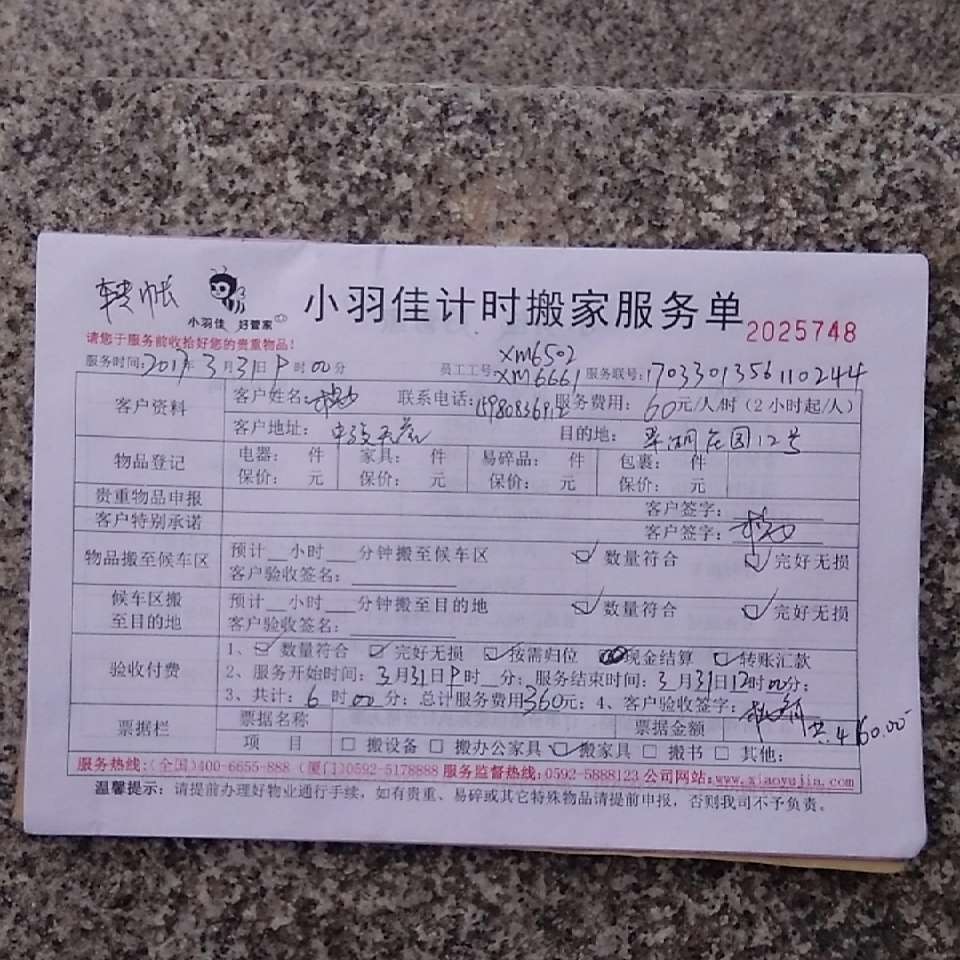 转帐
小羽佳 好管家
小羽佳计时搬家服务单
2025748
请您于服务前收拾好您的贵重物品!
服务时间:2017年3月31日 时00分
员工工号: XM6502
XM6661
服务联号:170330135610244
客户资料
客户姓名: 联系电话: 服务费用:60元/人/时(2小时起/人)
客户地址: 目的地:翠湖庄园12号
物品登记
电器: 件 家具: 件 易碎品: 件 包裹: 件
保价: 元 保价: 元 保价: 元 保价: 元
贵重物品申报 客户签字:
客户特别承诺 客户签字:
物品搬至候车区
预计__小时___分钟搬至候车区 数量符合 完好无损
客户验收签名:
候车区搬
至目的地
预计__小时___分钟搬至目的地 数量符合 完好无损
客户验收签名:
验收付费
1、数量符合 完好无损 按需归位 现金结算 转账汇款
2、服务开始时间:3月31日 时 分;服务结束时间:3月31日12时00分;
3、共计:6时00分;总计服务费用360元;4、客户验收签字:
共460.00
票据栏
票据名称 票据金额
项 目 搬设备 搬办公家具 搬家具 搬书 其他:
服务热线:(全国)400-6655-888 (厦门)0592-5178888 服务监督热线:0592-5888123 公司网站:www.xiaoyujia.com
温馨提示:请提前办理好物业通行手续,如有贵重、易碎或其它特殊物品请提前申报,否则我司不予负责。